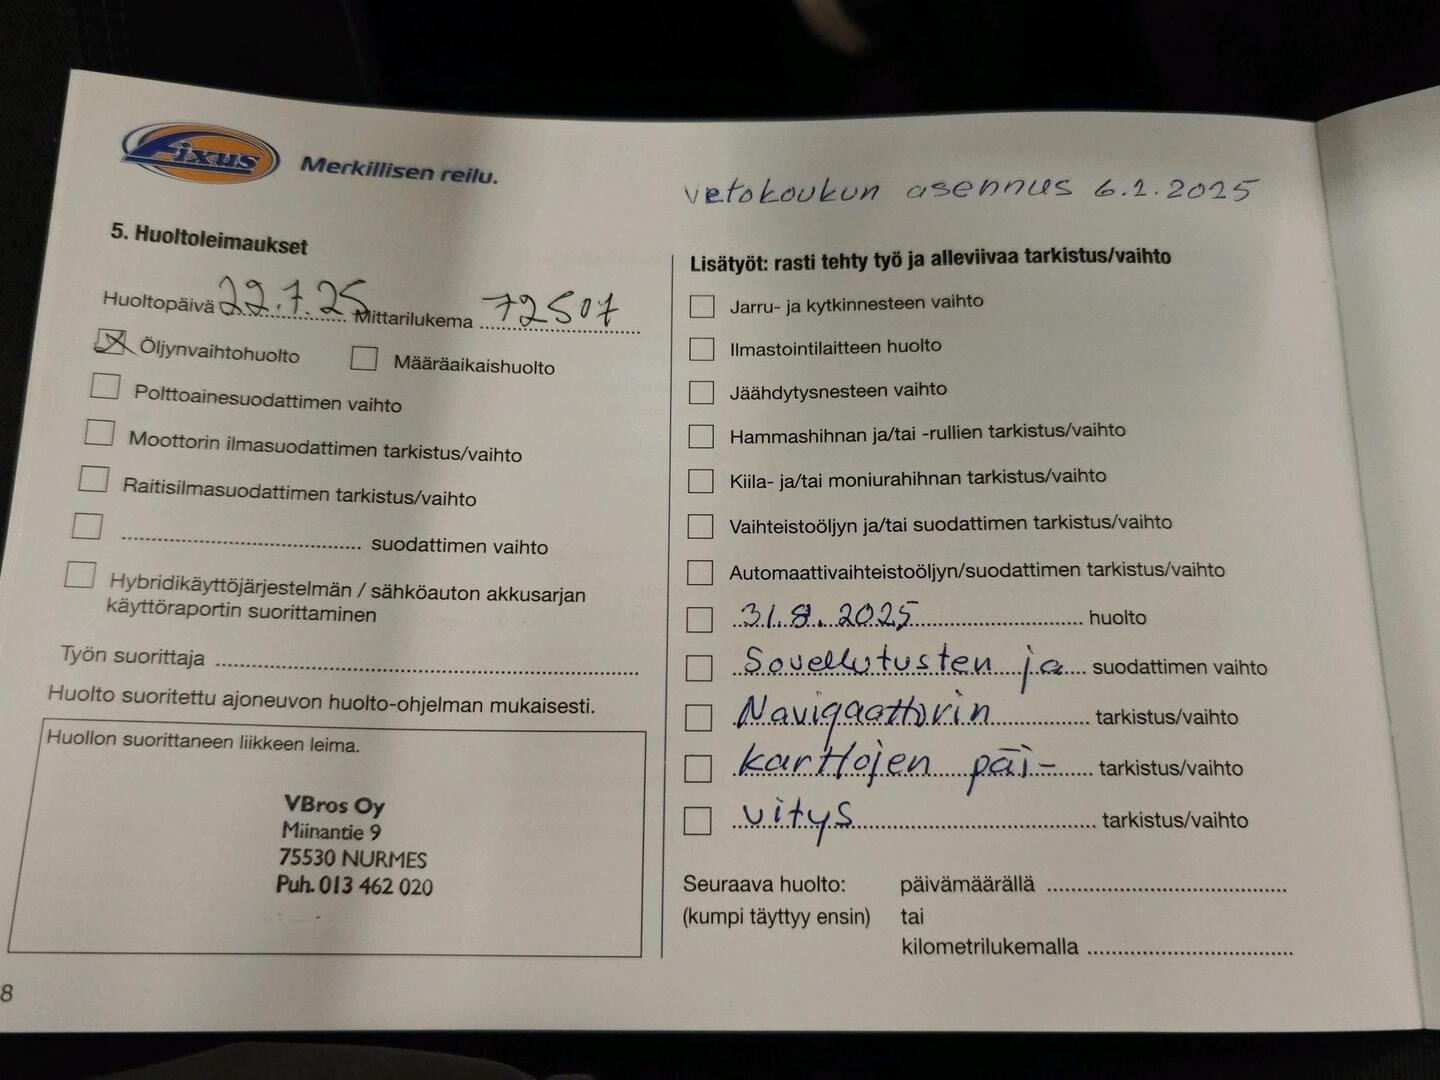 Fixus
Merkillisen reilu.
vetokoukun asennus 6.2.2025
5. Huoltoleimaukset
Huoltopäivä 22.7.25 Mittarilukema 72507
Öljynvaihtohuolto Määräaikaishuolto
Polttoainesuodattimen vaihto
Moottorin ilmasuodattimen tarkistus/vaihto
Raitisilmasuodattimen tarkistus/vaihto
suodattimen vaihto
Hybridikäyttöjärjestelmän / sähköauton akkusarjan
käyttöraportin suorittaminen
Työn suorittaja
Huolto suoritettu ajoneuvon huolto-ohjelman mukaisesti.
Huollon suorittaneen liikkeen leima.
VBros Oy
Miinantie 9
75530 NURMES
Puh. 013 462 020
8
Lisätyöt: rasti tehty työ ja alleviivaa tarkistus/vaihto
Jarru- ja kytkinnesteen vaihto
Ilmastointilaitteen huolto
Jäähdytysnesteen vaihto
Hammashihnan ja/tai -rullien tarkistus/vaihto
Kiila- ja/tai moniurahihnan tarkistus/vaihto
Vaihteistoöljyn ja/tai suodattimen tarkistus/vaihto
Automaattivaihteistoöljyn/suodattimen tarkistus/vaihto
31.8.2025 huolto
Sovellutusten ja suodattimen vaihto
Navigaattorin tarkistus/vaihto
karttojen päi- tarkistus/vaihto
vitys tarkistus/vaihto
Seuraava huolto: päivämäärällä
(kumpi täyttyy ensin) tai
kilometrilukemalla